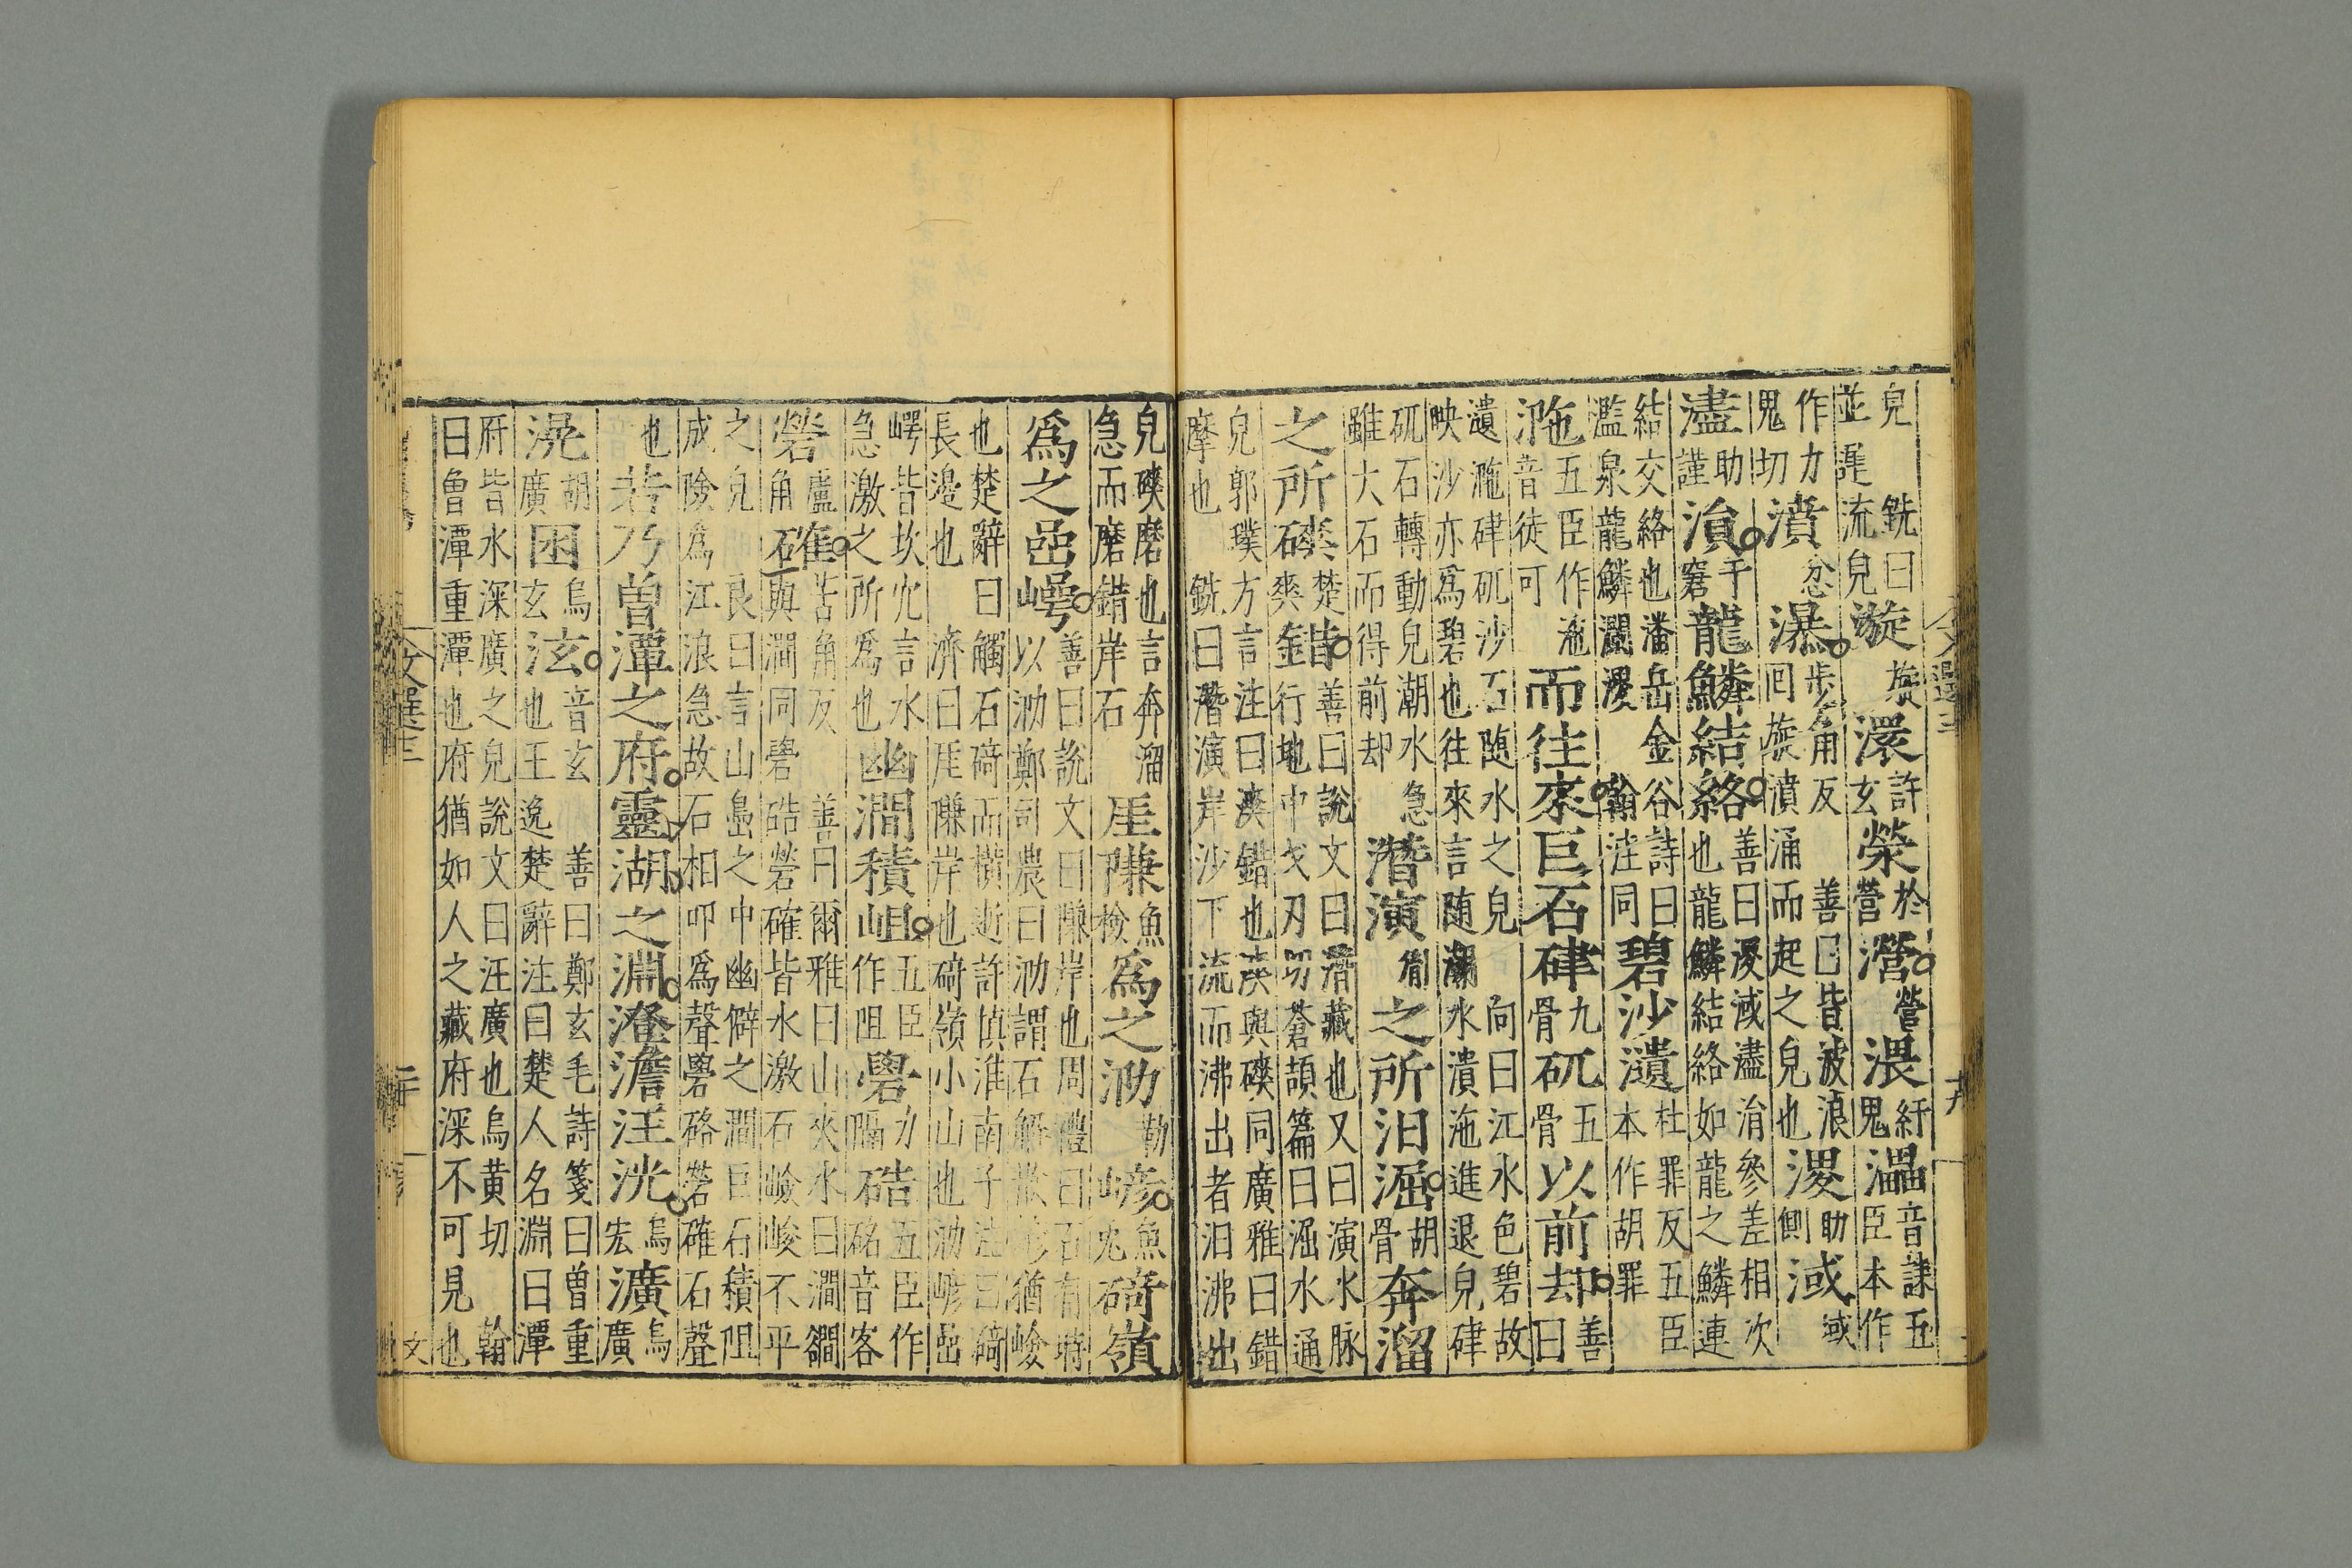 皃銑曰並𨓍流皃漩旋澴許玄滎於營瀯營渨紆鬼㵽音誄五臣本作
作力鬼切濆忿瀑步角反善曰皆波浪回旋濆涌而起之皃也溭助側淢域
濜助謹溳于窘龍鱗結絡善曰溭淢濜溳參差相次也龍鱗結絡如龍之鱗連
結交絡也潘岳金谷詩曰濫泉龍鱗瀾溭翰注同碧沙瀢杜罪反五臣本作胡罪
沲五臣作沲音徒可而往來巨石硉九骨矹五骨以前却善曰
瀢沲硉矹沙石随水之皃向曰江水色碧故映沙亦為碧也往來言随潮水潰沲進退皃硉
矹石轉動皃潮水急雖大石而得前却潛演胤之所汩淈胡骨奔溜
之所磢楚爽錯善曰說文曰潛藏也又曰演水脉行地中戈刃切蒼頡篇曰淈水通
皃郭璞方言注曰漺錯也漺與磢同廣雅曰錯摩也銑曰潛演岸沙下流而沸出者汩沸出
皃磢磨也言奔溜急而磨錯岸石厓隒魚檢爲之泐勒嵃魚免碕嶺
爲之嵒崿善曰說文曰隒岸也周禮曰石有時以泐鄭司農曰泐謂石解散嵃猶峻
也楚辭曰觸石碕而橫逝許慎淮南子注曰碕長邉也濟曰厓隒岸也碕嶺小山也泐嵃嵒
崿皆坎穴言水急激之所為也幽澗積岨五臣作阻礐力隔硞五臣作硌音客
䂫盧角確苦角反善曰爾雅曰山夾水曰澗㵎與澗同礐硞䂫確皆水激石嶮峻不平
之皃良曰言山嵒之中幽僻之澗巨石積阻成險為江浪急故石相叩為聲礐硌䂫確石聲
也若乃曾潭之府靈湖之淵澄澹汪洸烏宏㶇烏廣
滉胡廣囦烏玄泫音玄善曰鄭玄毛詩箋曰曾重也王逸楚辭注曰楚人名淵曰潭
府皆水深廣之皃說文曰汪廣也烏黄切翰曰曾潭重潭也府猶如人之藏府深不可見也